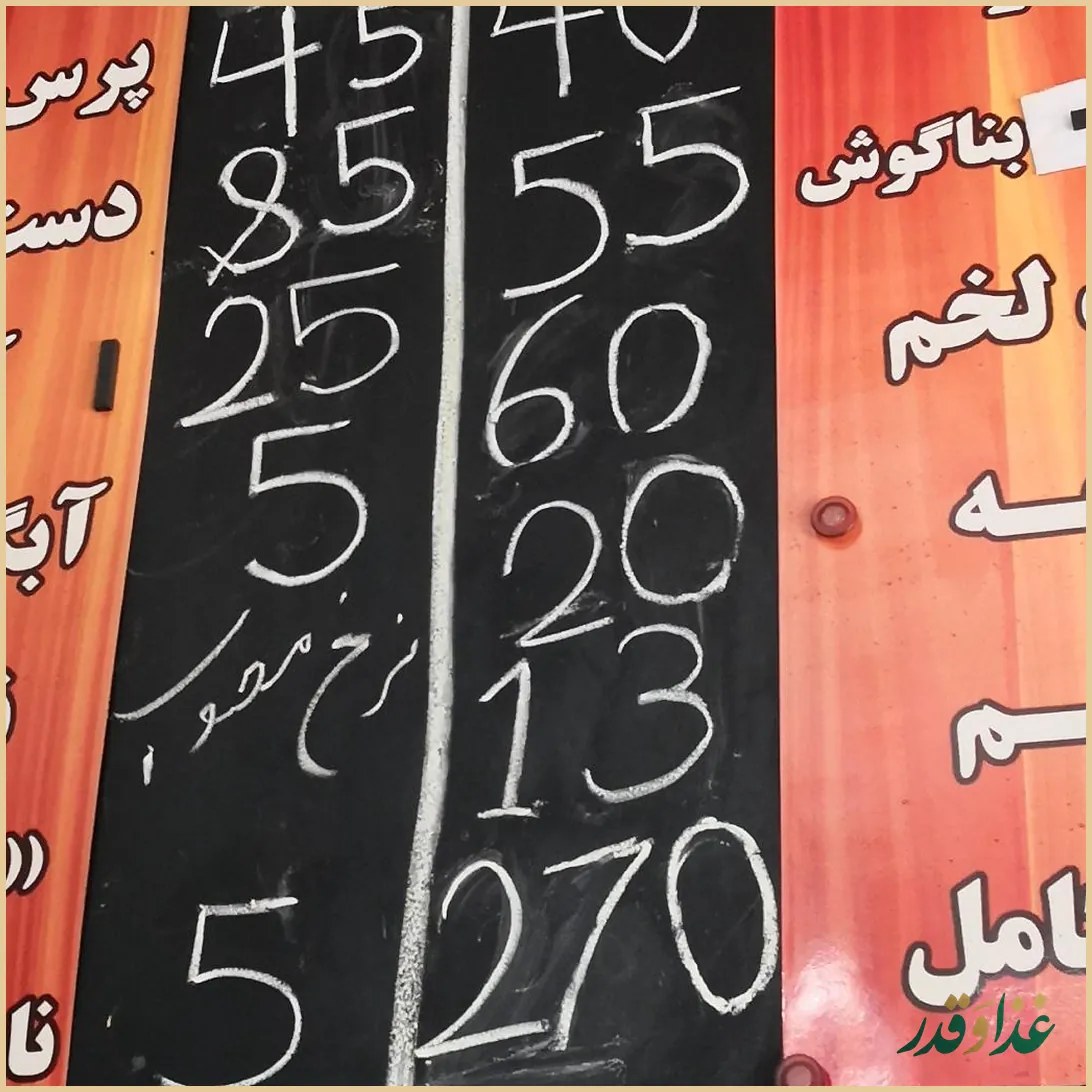 40
بناگوش 55
لخم 60
20
13
270
پرس 45
85
25
5
نرخ مصوب
5
نا
غذا و قدر